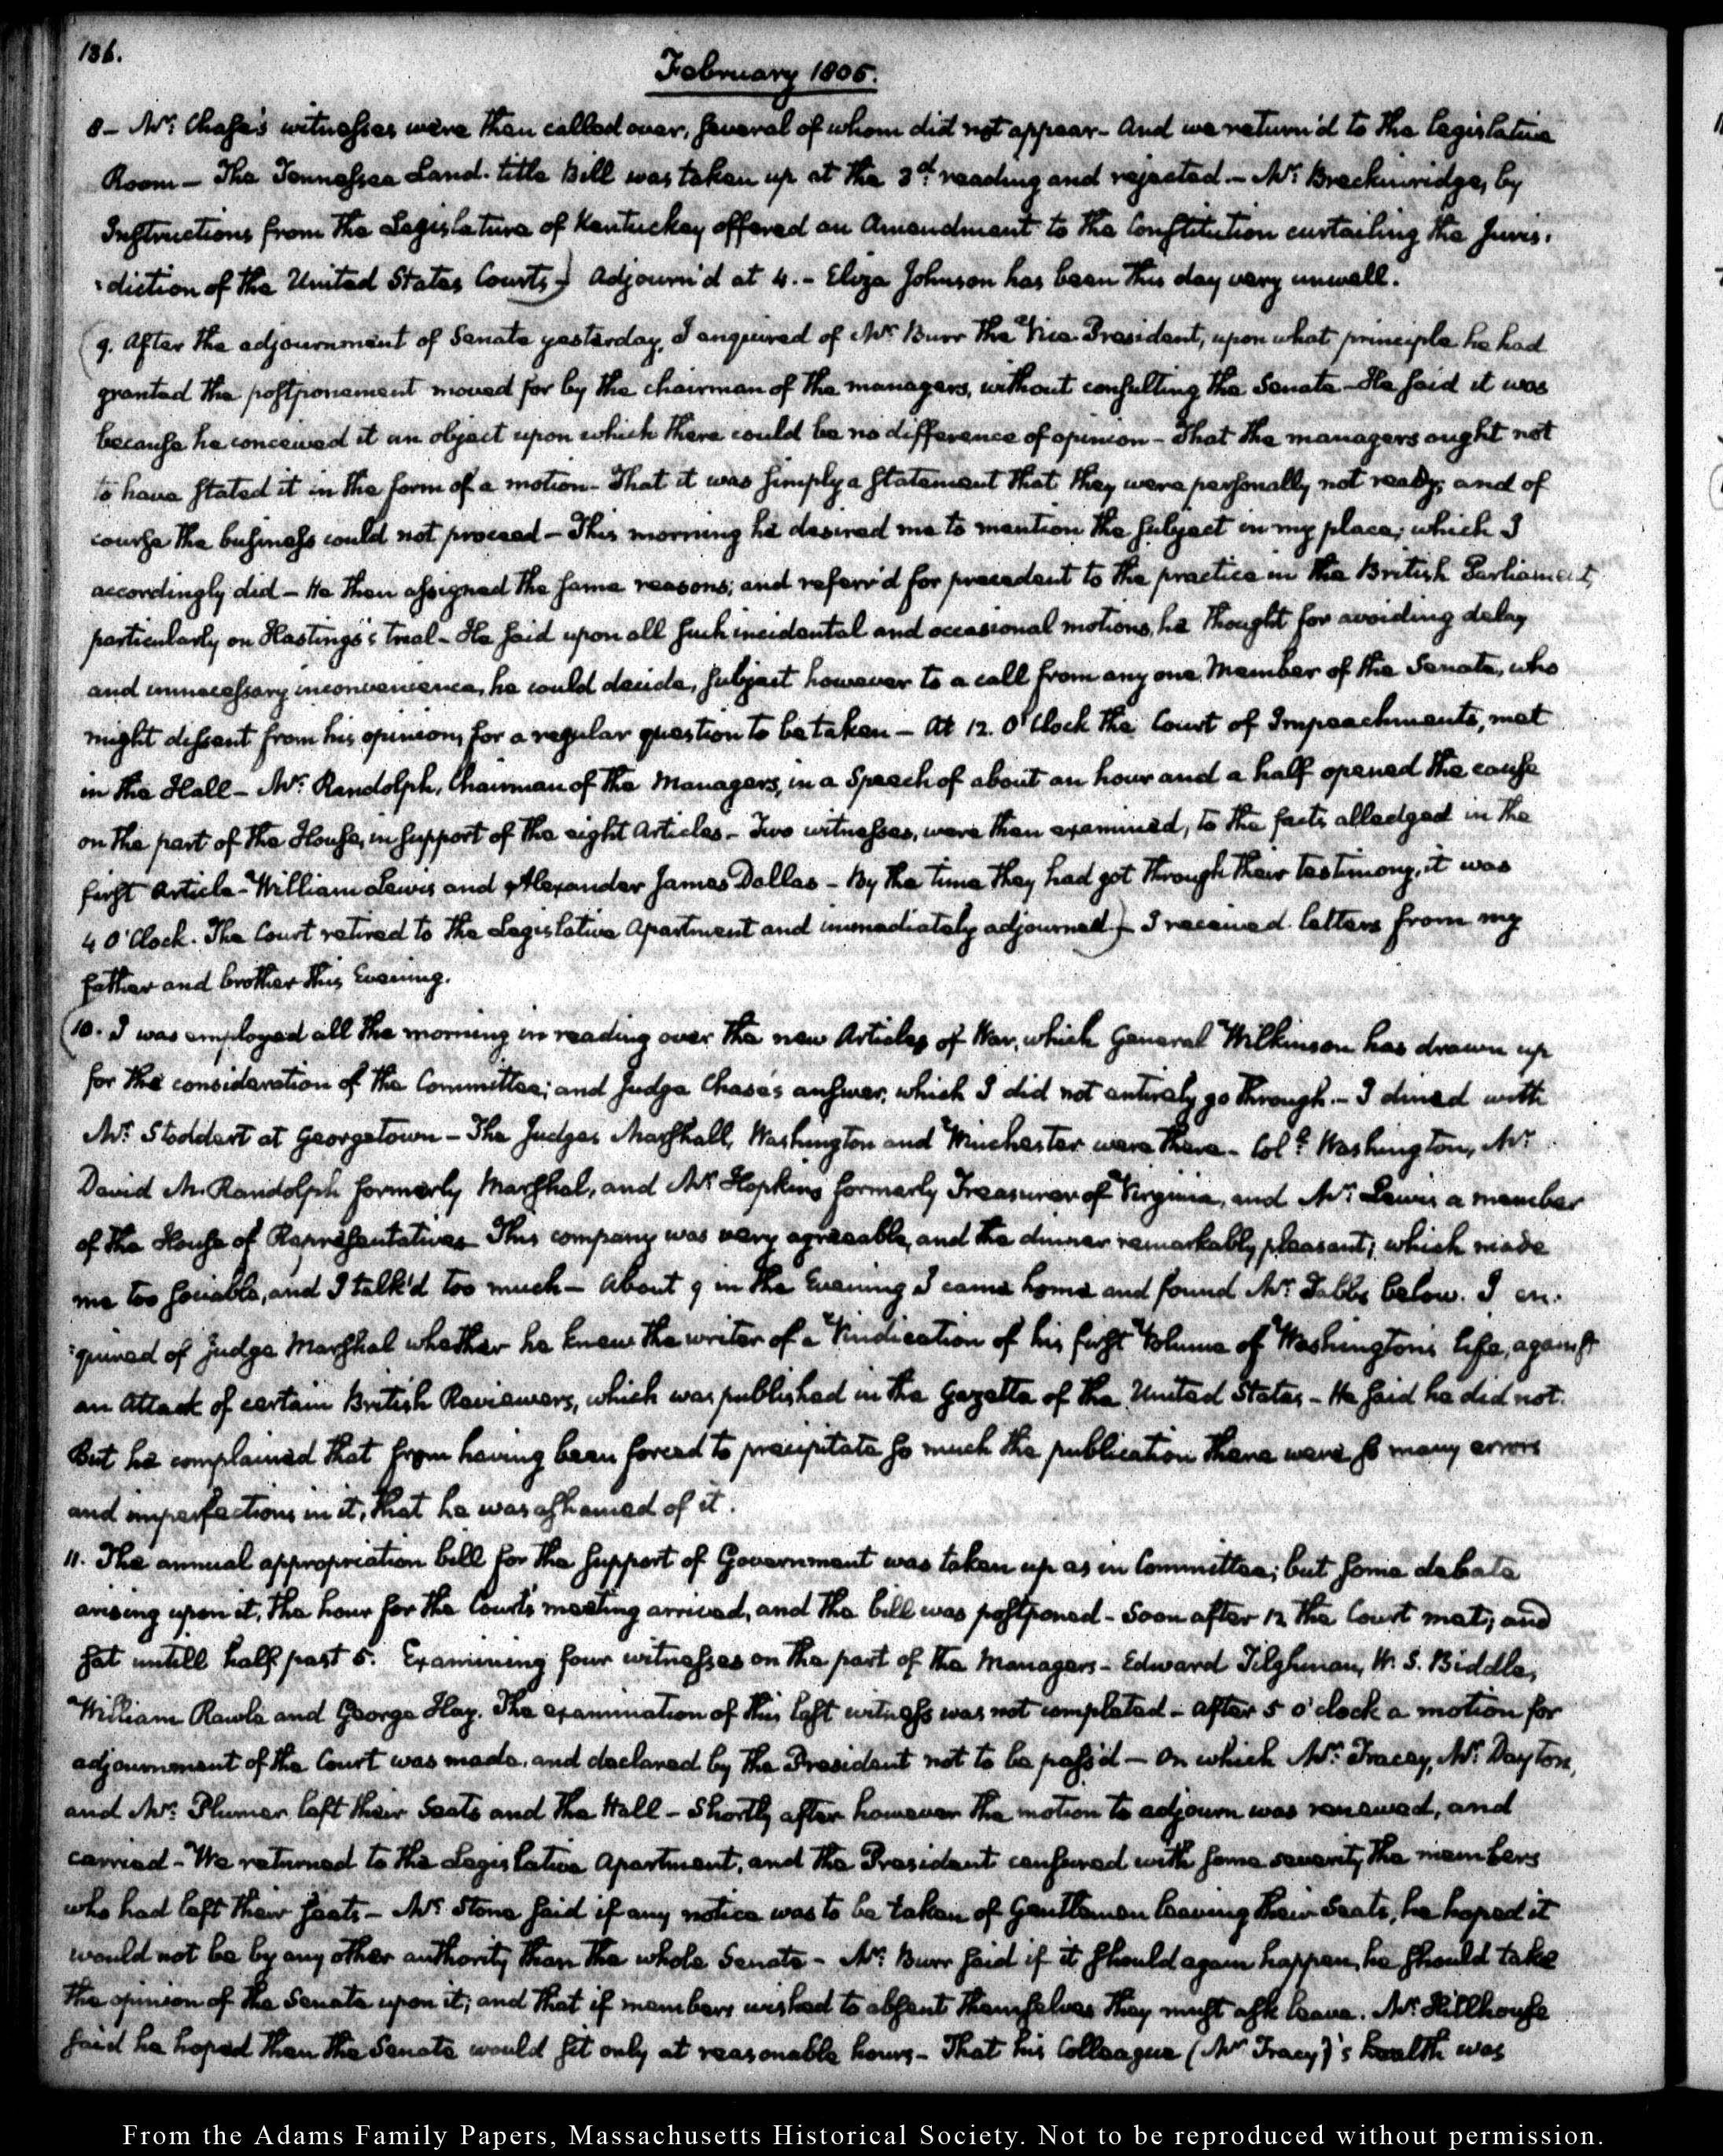 186.
February 1805.
8– Mr: Chase's witnesses were then called over, several of whom did not appear– And we return'd to the legislative
Room– The Tennessee Land-title Bill was taken up at the 3d: reading and rejected.– Mr: Breckinridge, by
Instructions from the Legislature of Kentuckey offered an Amendment to the Constitution curtailing the Juris-
-diction of the United States Courts–) Adjourn'd at 4.– Eliza Johnson has been this day very unwell.
(9. After the adjournment of Senate yesterday, I enquired of Mr Burr the Vice-President, upon what principle he had
granted the postponement moved for by the chairman of the managers, without consulting the Senate–He said it was
because he conceived it an object upon which there could be no difference of opinion– That the managers ought not
to have stated it in the form of a motion– That it was simply a statement that they were personally not ready; and of
course the business could not proceed– This morning he desired me to mention the subject in my place; which I
accordingly did– He then assigned the same reasons; and referr'd for precedent to the practice in the British Parliament,
particularly on Hastings's trial– He said upon all such incidental and occasional motions, he thought for avoiding delay
and unnecessary inconvenience, he could decide, subject however to a call from any one Member of the Senate, who
might dissent from his opinion, for a regular question to be taken– At 12. O'Clock the Court of Impeachments, met
in the Hall– Mr: Randolph, Chairman of the Managers, in a Speech of about an hour and a half opened the cause
on the part of the House, in support of the eight Articles– Two witnesses, were then examined, to the facts alledged in the
first Article–William Lewis and Alexander James Dallas– By the time they had got through their testimony, it was
4 O'Clock. The Court retired to the Legislative Apartment and immediately adjourned–) I received letters from my
father and brother this Evening.
(10. I was employed all the morning in reading over the new Articles of War, which General Wilkinson has drawn up
for the consideration of the Committee; and Judge Chase's answer, which I did not entirely go through.– I dined with
Mr: Stoddert at Georgetown– The Judges Marshall, Washington and Winchester were there– Coll: Washington, Mr
David M. Randolph formerly Marshal, and Mr Hopkins formerly Treasurer of Virginia, and Mr: Lewis a member
of the House of Representatives– This company was very agreeable, and the dinner remarkably pleasant; which made
me too sociable, and I talk'd too much– About 9 in the Evening I came home and found Mr: Tabbs below. I en-
-quired of Judge Marshal whether he knew the writer of a Vindication of his first Volume of Washington's life, against
an Attack of certain British Reviewers, which was published in the Gazette of the United States– He said he did not.
But he complained that from having been forced to precipitate so much the publication there were so many errors
and imperfections in it, that he was ashamed of it.
11. The annual appropriation bill for the support of Government was taken up as in Committee; but some debate
arising upon it, the hour for the Court's meeting arrived, and the bill was postponed– Soon after 12 the Court met; and
sat untill half past 5. Examining four witnesses on the part of the Managers– Edward Tilghman, W. S. Biddle,
William Rawle and George Hay. The examination of this last witness was not completed– After 5 o'clock a motion for
adjournment of the Court was made, and declared by the President not to be pass'd– On which Mr: Tracey, Mr: Dayton,
and Mr: Plumer left their Seats and the Hall– Shortly after however the motion to adjourn was renewed, and
carried–We returned to the Legislative Apartment, and the President censured with some severity the members
who had left their seats– Mr: Stone said if any notice was to be taken of Gentlemen leaving their Seats, he hoped it
would not be by any other authority than the whole Senate– Mr: Burr said if it should again happen, he should take
the opinion of the Senate upon it; and that if members wished to absent themselves they must ask leave. Mr: Hillhouse
said he hoped then the Senate would sit only at reasonable hours– That his Colleague (Mr Tracy)'s health was
From the Adams Family Papers, Massachusetts Historical Society. Not to be reproduced without permission.